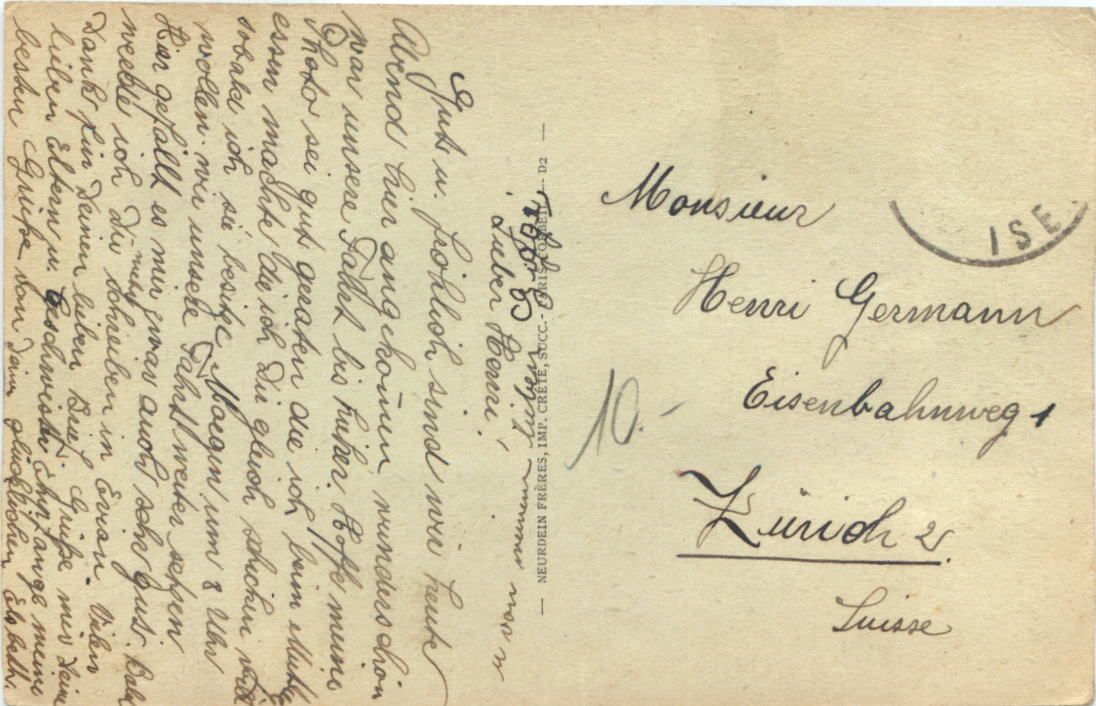 Lieber Henri!
Gut u. fröhlich sind wir heute
Abend hier angekom̄en wunderschön
war unsere Fahrt bis hieher. Hoffe meine
Photo sei gut geraten die ich beim Mittag
essen machte die ich Dir gleich schicken will
sobald ich sie besitze. Morgen um 8 Uhr
wollen wir unsere Fahrt weiter setzen
Hier gefällt es mir zwar auch sehr gut. Bald
werde ich Dir schreiben in Evian. Vielen
Dank für Deinen lieben Brief. Grüße mir Deine
lieben Eltern u. Geschwister. Empfange meine
besten Grüße von Deiner glücklichen Elsbeth.
— NEURDEIN FRÈRES, IMP. CRÉTÉ, SUCC. - PARIS, CORBEIL — D2 —
ISE
Monsieur
Henri Germann
Eisenbahnweg 1
10.-
Zürich 2
Suisse